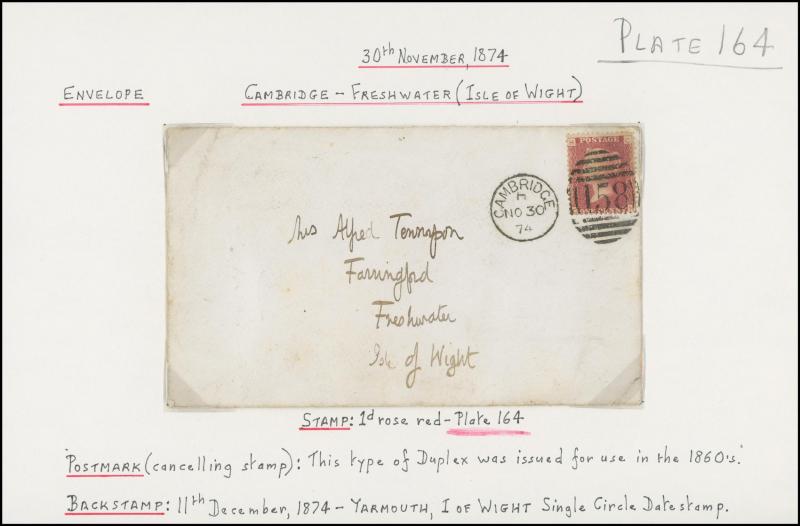 PLATE 164
30th NOVEMBER, 1874
ENVELOPE
CAMBRIDGE - FRESHWATER (ISLE OF WIGHT)
POSTAGE
158
CAMBRIDGE
NO 30
74
Mrs Alfred Tennyson
Farringford
Freshwater
Isle of Wight
STAMP: 1d rose red - Plate 164
POSTMARK (cancelling stamp): This type of Duplex was issued for use in the 1860's.
BACKSTAMP: 11th December, 1874 - YARMOUTH, I OF WIGHT Single Circle Datestamp.